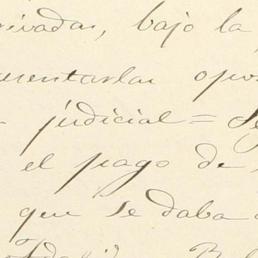 privadas, bajo la
presentarlas opo
judicial = Se
el pago de
que se daba